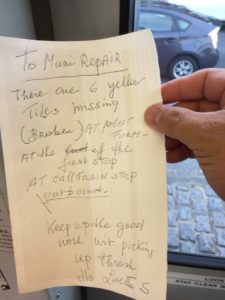 To Muni Repair
There are 6 yellow
Tides missing
(Broken) AT PLAT
FORM-
AT the end of the
first stop
AT CALTRAIN STOP
outbound
Keep up the good
work wit picking
up thrash
S
LOOK
STAY CLEAR